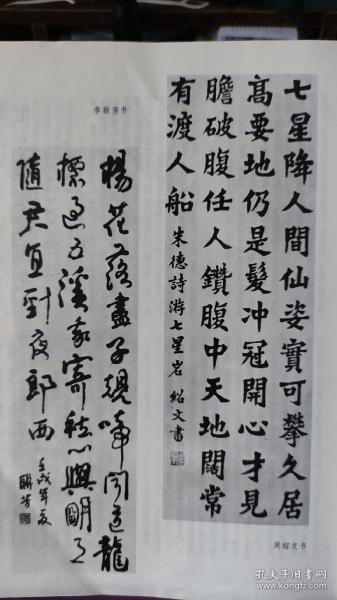 七星降人間仙姿實可攀久居
高要地仍是髮冲冠開心才見
膽破腹任人鑽腹中天地闊常
有渡人船
朱德詩游七星岩 紹文書
周紹文书
李联芳书
楊花落盡子規啼聞道龍
標過五溪我寄愁心與明月
隨君直到夜郎西
壬戌年夏
聯芳
孔夫子旧书网